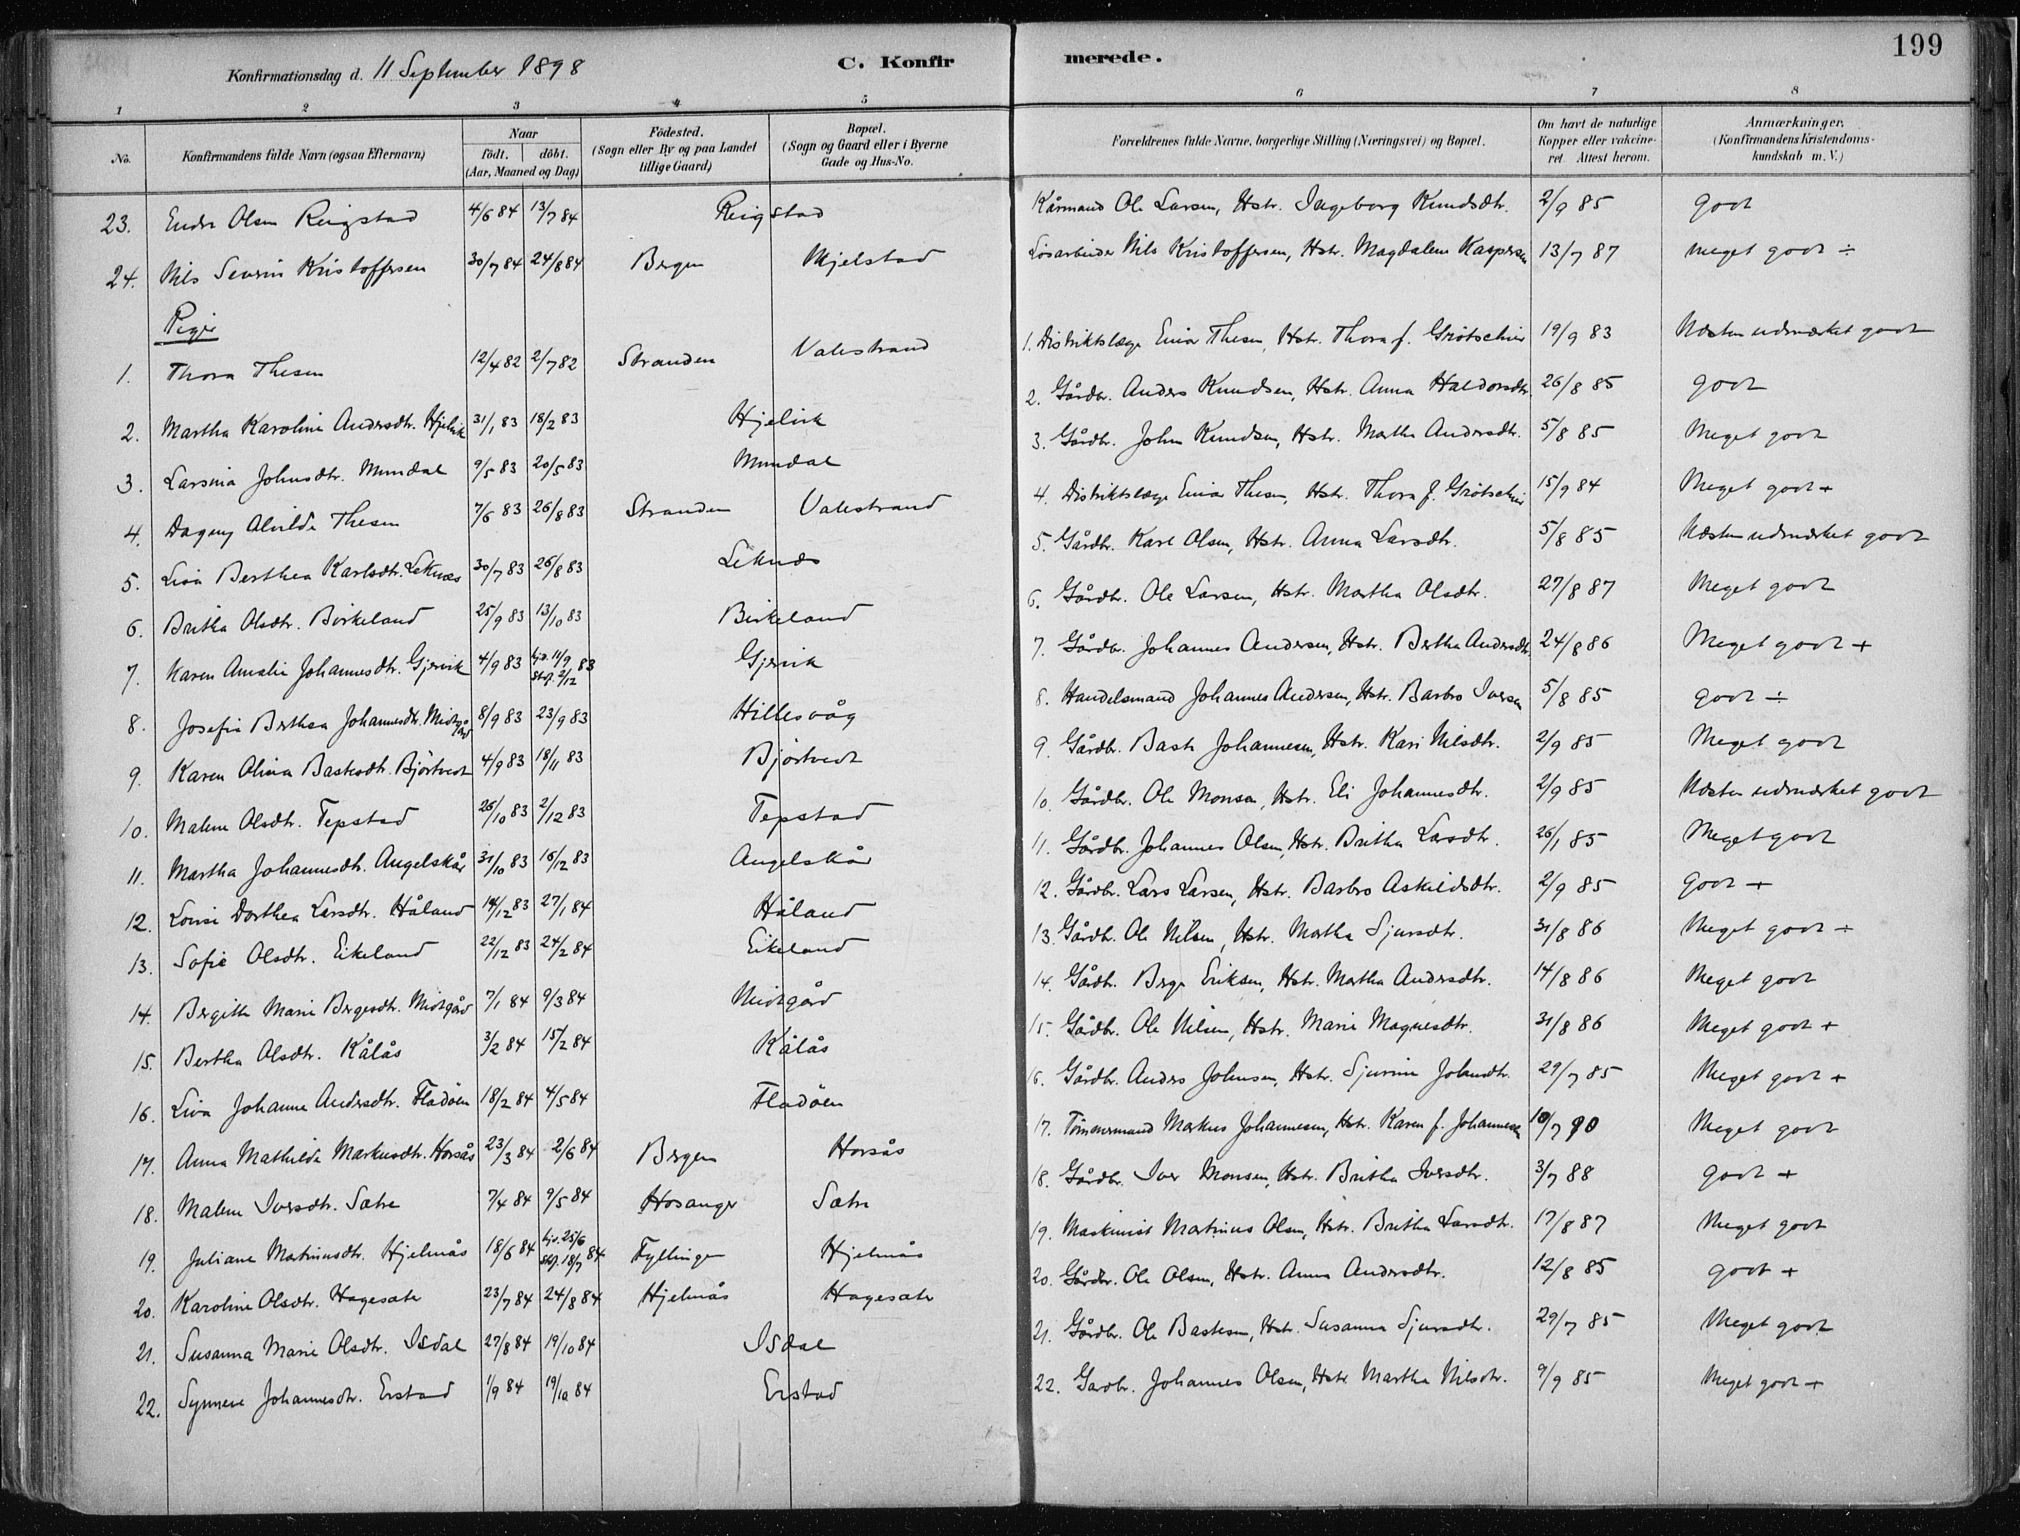 199
Konfirmationsdag d. 11 September 1898 C. Konfirmerede.
1 2 3 4 5 6 7 8
No. Konfirmandens fulde Navn (ogsaa Efternavn) Naar født. døbt. (Aar, Maaned og Dag) Fødested. (Sogn eller By og paa Landet tillige Gaard) Bopæl. (Sogn og Gaard eller i Byerne Gade og Hus-No. Forældrenes fulde Navne, borgerlige Stilling (Næringsvei) og Bopæl. Om havt de naturlige Kopper eller vakcineret. Attest herom. Anmærkninger, (Konfirmandens Kristendomskundskab m. V.)
23. Endre Olsen Ringstad 4/6 84 13/7 84 Ringstad Kårmand Ole Larsen, Hstr. Ingeborg Knudsdtr. 2/9 85 godt
24. Nils Severin Kristoffersen 30/7 84 24/8 84 Bergen Mjelstad Løsarbeider Nils Kristoffersen, Hstr. Magdalene Kaspersen 13/7 87 meget godt ÷
Piger
1. Thora Thesen 12/4 82 2/7 82 Stranden Valestrand 1. Distriktslæge Einar Thesen, Hstr. Thora f. Grøtschier 19/9 83 Næsten udmærket godt
2. Martha Karoline Andersdtr. Hjelvik 31/1 83 18/2 83 Hjelvik 2. Gårdbr. Anders Knudsen, Hstr. Anna Haldorsdtr. 26/8 85 godt
3. Larsina Johnsdtr. Mundal 9/5 83 20/5 83 Mundal 3. Gårdbr. John Knudsen, Hstr. Martha Andersdtr. 5/8 85 Meget godt
4. Dagny Alvilde Thesen 7/6 83 26/8 83 Stranden Valestrand 4. Distriktslæge Einar Thesen, Hstr. Thora f. Grøtschier 15/9 84 Meget godt +
5. Lisa Berthea Karlsdtr. Leknes 30/7 83 26/8 83 Leknes 5. Gårdbr. Karl Olsen, Hstr. Anna Larsdtr. 5/8 85 Næsten udmærket godt
6. Britha Olsdtr. Birkeland 25/9 83 13/10 83 Birkeland 6. Gårdbr. Ole Larsen, Hstr. Martha Olsdtr. 27/8 87 Meget godt
7. Karen Amalie Johannesdtr. Gjervik 4/9 83 hjd. 11/9 Stf. 2/12 83 Gjervik 7. Gårdbr. Johannes Andersen, Hstr. Bertha Andersdtr. 24/8 86 Meget godt +
8. Josefie Berthea Johannesdtr. Midtgård 8/9 83 23/9 83 Hillesvåg 8. Handelsmand Johannes Andersen, Hstr. Barbro Iversen 5/8 85 godt ÷
9. Karen Olina Bastesdtr. Bjørtvedt 4/9 83 18/11 83 Bjørtvedt 9. Gårdbr. Baste Johannesen, Hstr. Kari Nilsdtr. 2/9 85 Meget godt
10. Malene Olsdtr. Tepstad 26/10 83 2/12 83 Tepstad 10. Gårdbr. Ole Monsen, Hstr. Eli Johannesdtr. 2/9 85 Næsten udmærket godt
11. Martha Johannesdtr. Angelskår 31/10 83 16/12 83 Angelskår 11. Gårdbr. Johannes Olsen, Hstr. Britha Larsdtr. 26/1 85 Meget godt
12. Louise Dorthea Larsdtr. Håland 14/12 83 27/1 84 Håland 12. Gårdbr. Lars Larsen, Hstr. Barbro Askildsdtr. 2/9 85 godt +
13. Sofie Olsdtr. Eikeland 22/12 83 24/2 84 Eikeland 13. Gårdbr. Ole Nilsen, Hstr. Martha Sjursdtr. 31/8 86 Meget godt ÷
14. Bergitte Marie Bergesdtr. Midtgård 7/1 84 9/3 84 Midtgård 14. Gårdbr. Berge Eriksen, Hstr. Martha Andersdtr. 14/8 86 Meget godt
15. Bertha Olsdtr. Kålås 3/2 84 15/2 84 Kålås 15. Gårdbr. Ole Nilsen, Hstr. Marie Magnesdtr. 31/8 86 Meget godt +
16. Lisa Johanne Andersdtr. Fladøen 18/2 84 4/5 84 Fladøen 16. Gårdbr. Anders Johnsen, Hstr. Sjurine Johnsdtr. 29/7 85 Meget godt +
17. Anna Mathilde Markusdtr. Horsås 23/3 84 2/6 84 Bergen Horsås 17. Tømmermand Markus Johannesen, Hstr. Karen f. Johannesen 10/7 90 Meget godt
18. Malene Iversdtr. Sætre 7/4 84 9/5 84 Hosanger Sætre 18. Gårdbr. Iver Monsen, Hstr. Britha Iversdtr. 3/7 88 godt +
19. Juliane Martinusdtr. Hjelmås 18/6 84 hjd. 25/6 Stf. 18/7 84 Fyllingen Hjelmås 19. Maskinist Martinus Olsen, Hstr. Britha Larsdtr. 17/8 87 Meget godt
20. Karoline Olsdtr. Hagesæte 23/7 84 24/8 84 Hjelmås Hagesæte 20. Gårdbr. Ole Olsen, Hstr. Anna Andersdtr. 12/8 85 godt +
21. Susanna Marie Olsdtr. Isdal 27/8 84 19/10 84 Isdal 21. Gårdbr. Ole Bastesen, Hstr. Susanna Sjursdtr. 29/7 85 Meget godt
22. Synneve Johannesdtr. Erstad 1/9 84 19/10 84 Erstad 22. Gardbr. Johannes Olsen, Hstr. Martha Nilsdtr. 9/9 85 Meget godt +